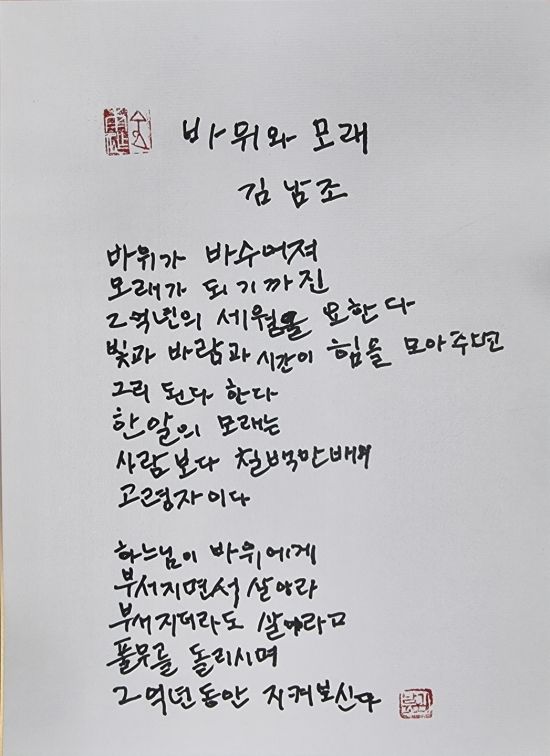 바위와 모래
김남조
바위가 바수어져
모래가 되기까진
그억년의 세월을 요한다
빛과 바람과 시간이 힘을 모아주면
그리 된다 한다
한알의 모래는
사람보다 칠백만배의
고령자이다
하느님이 바위에게
부서지면서 살아라
부서지더라도 살아라고
풀무를 돌리시며
그억년동안 지켜보신다